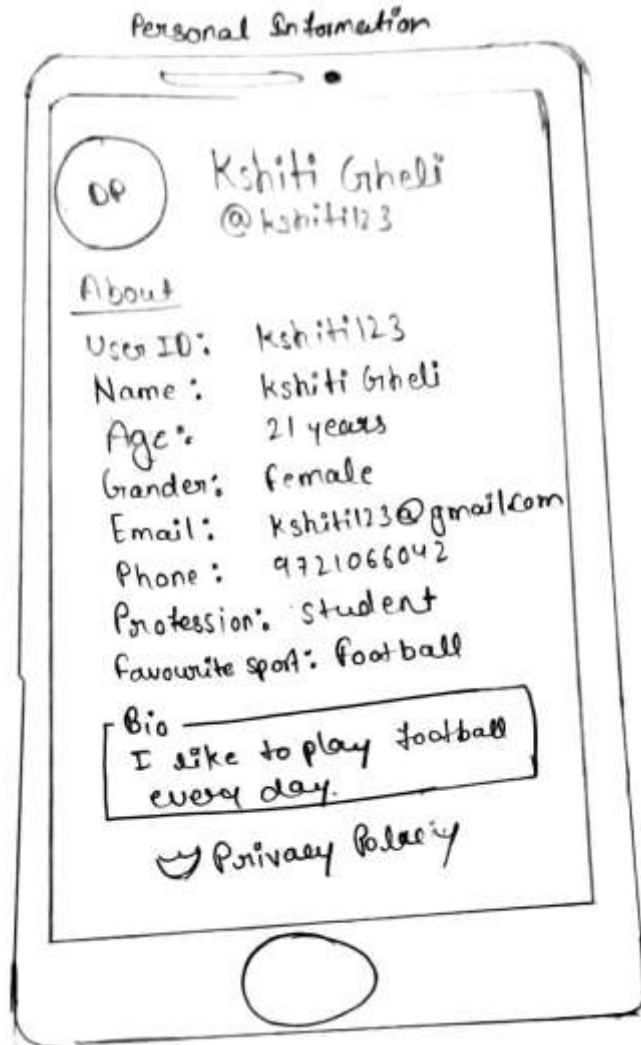 Personal Information
DP
Kshiti Gheli
@kshiti123
About
User ID: kshiti123
Name: kshiti Gheli
Age: 21 years
Gander: female
Email: kshiti123@gmail.com
Phone: 9721066042
Profession: student
favourite sport: football
Bio
I like to play football
every day.
Privacy Policiy